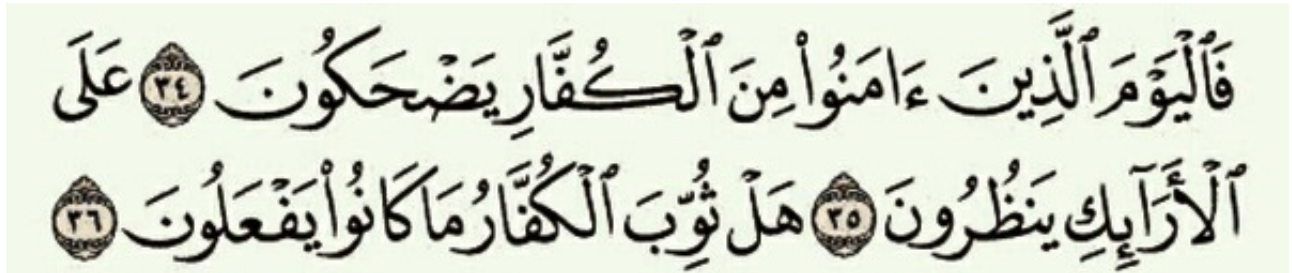 فَٱلْيَوْمَ ٱلَّذِينَ ءَامَنُوا۟ مِنَ ٱلْكُفَّارِ يَضْحَكُونَ ٣٤ عَلَى
ٱلْأَرَآئِكِ يَنظُرُونَ ٣٥ هَلْ ثُوِّبَ ٱلْكُفَّارُ مَا كَانُوا۟ يَفْعَلُونَ ٣٦